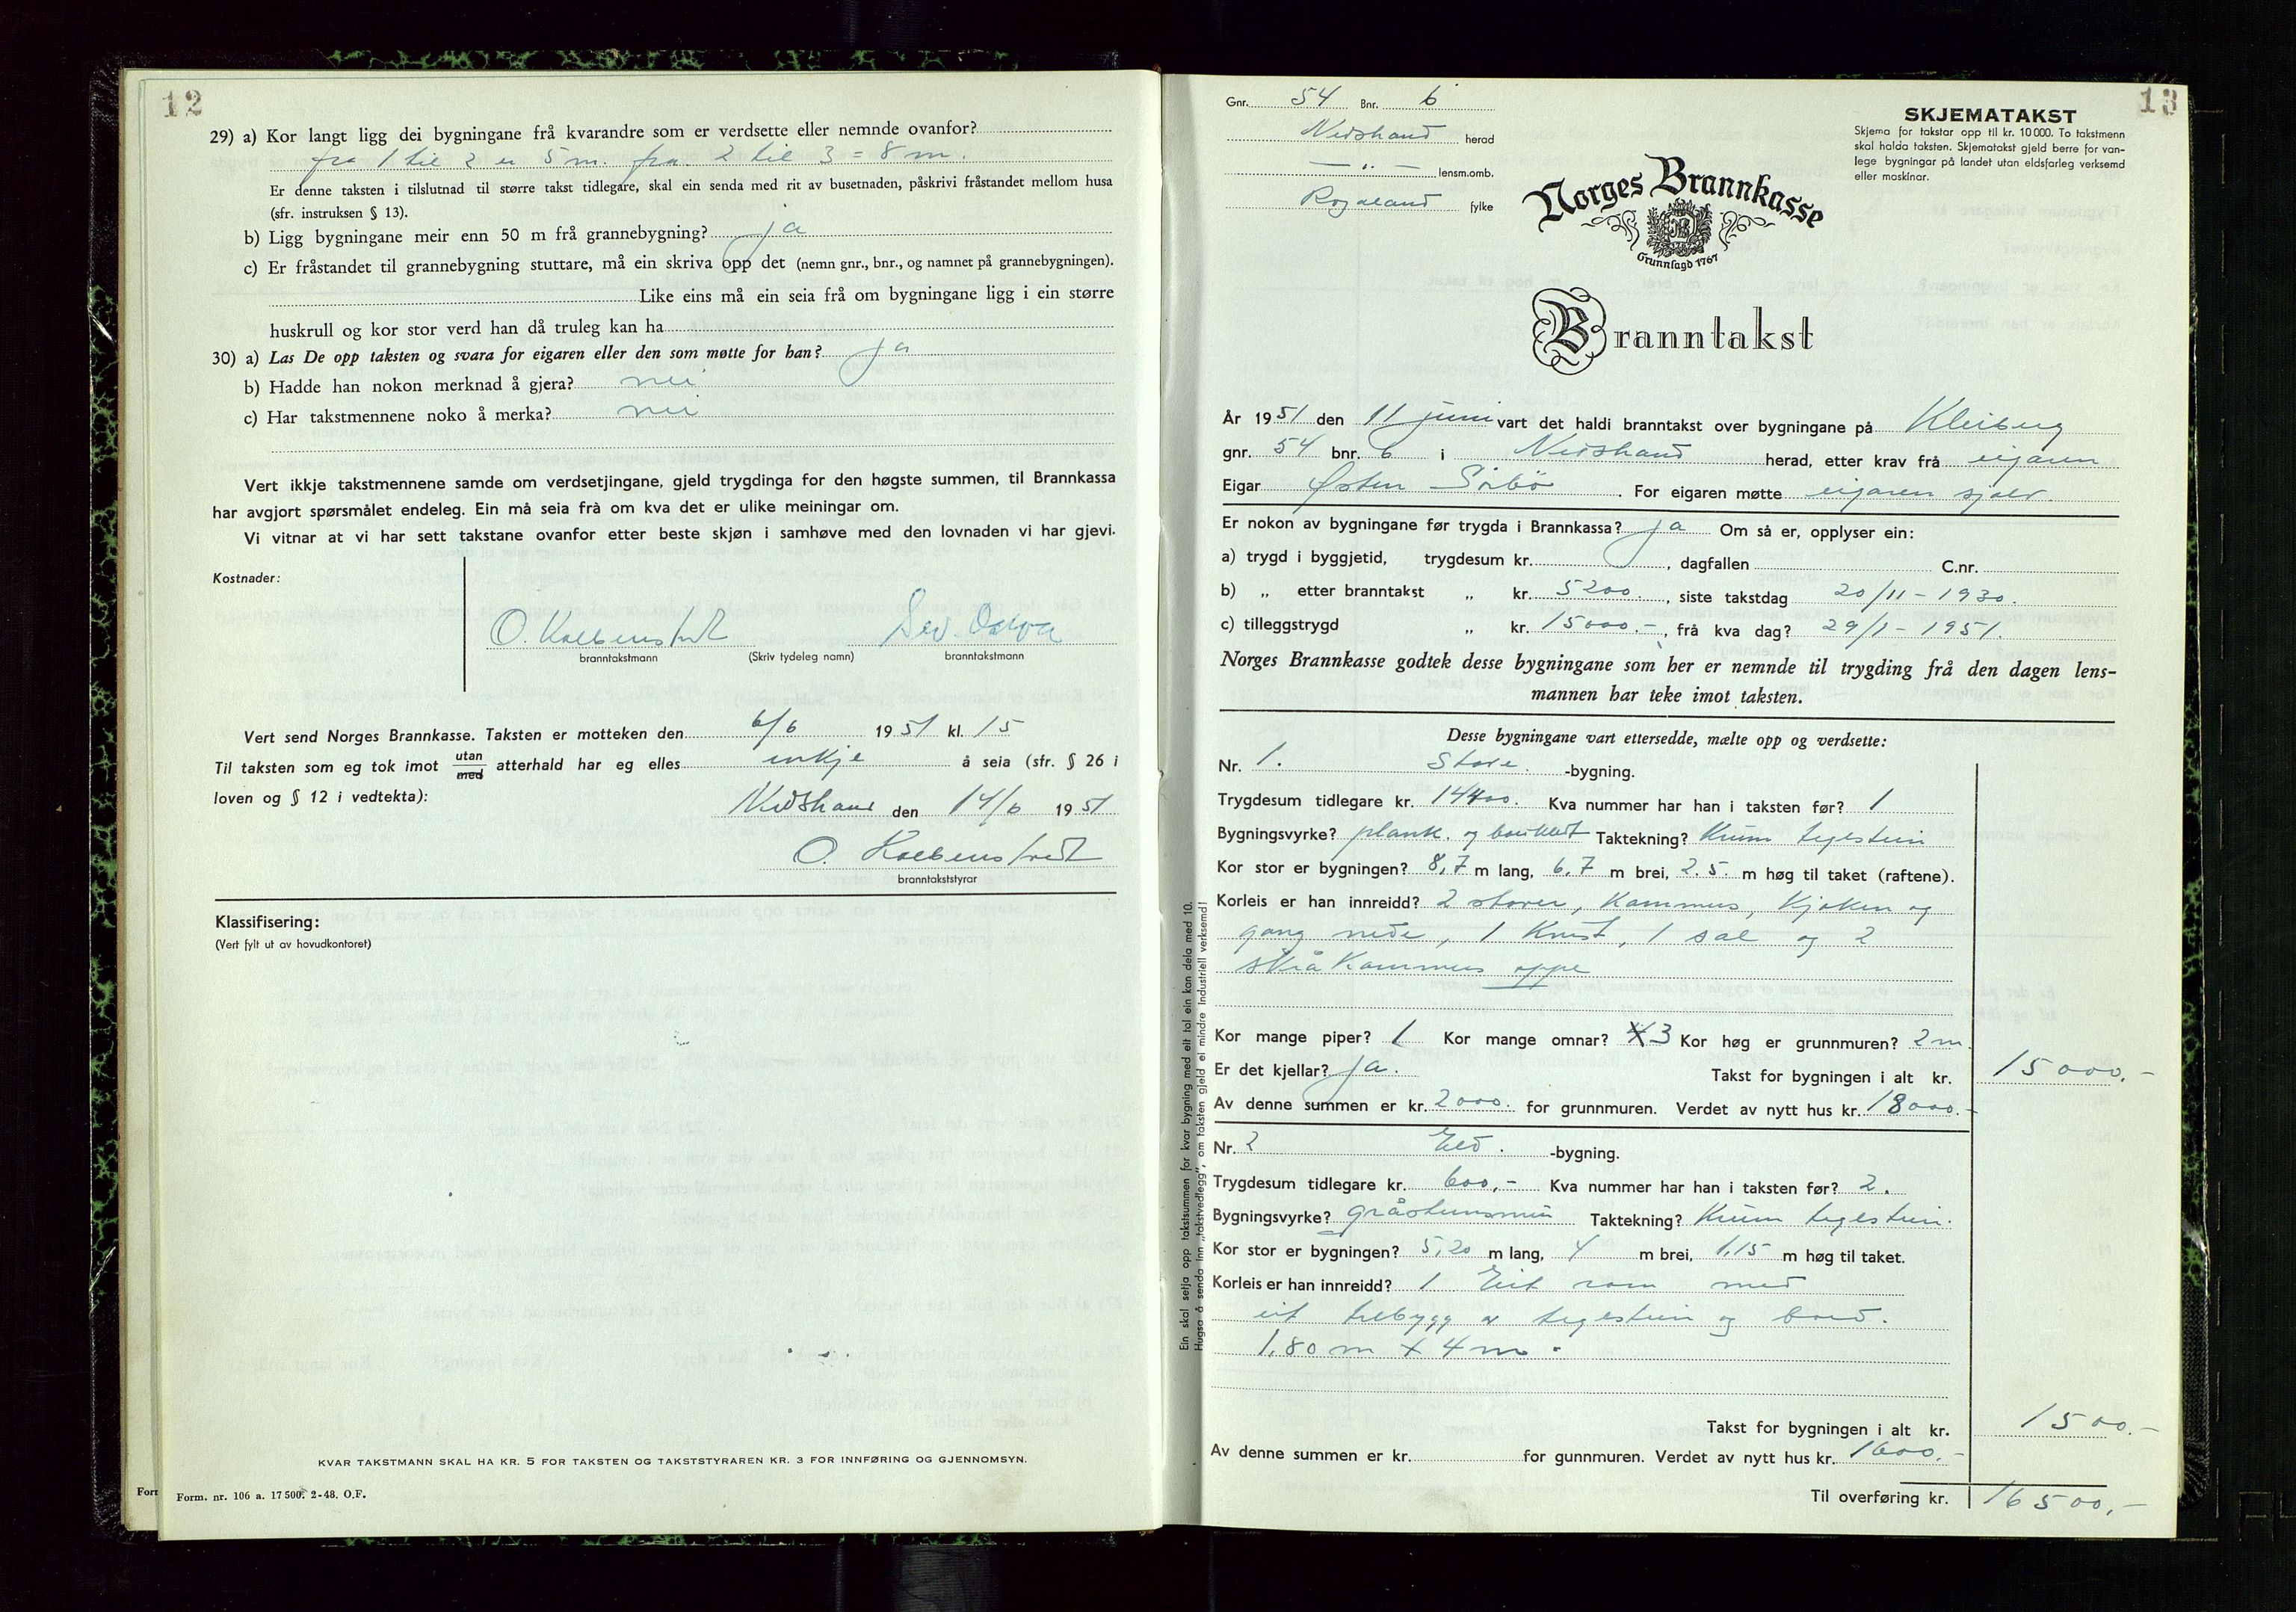 12
29) a) Kor langt ligg dei bygningane frå kvarandre som er verdsette eller nemnde ovanfor?
fra 1 til 2 er 5 m. fra 2 til 3 = 8 m.
Er denne taksten i tilslutnad til større takst tidlegare, skal ein senda med rit av busetnaden, påskrivi fråstandet mellom husa
(sfr. instruksen § 13).
b) Ligg bygningane meir enn 50 m frå grannebygning? ja
c) Er fråstandet til grannebygning stuttare, må ein skriva opp det (nemn gnr., bnr., og namnet på grannebygningen).
Like eins må ein seia frå om bygningane ligg i ein større
huskrull og kor stor verd han då truleg kan ha
30) a) Las De opp taksten og svara for eigaren eller den som møtte for han? ja
b) Hadde han nokon merknad å gjera? nei
c) Har takstmennene noko å merka? nei
Vert ikkje takstmennene samde om verdsetjingane, gjeld trygdinga for den høgste summen, til Brannkassa
har avgjort spørsmålet endeleg. Ein må seia frà om kva det er ulike meiningar om.
Vi vitnar at vi har sett takstane ovanfor etter beste skjøn i samhøve med den lovnaden vi har gjevi.
Kostnader:
O. Kolbenstvedt
branntakstmann (Skriv tydeleg namn) branntakstmann
Vert send Norges Brannkasse. Taksten er motteken den 6/6 1951 kl. 15
Til taksten som eg tok imot utan/med atterhald har eg elles inkje å seia (sfr. § 26 i
loven og § 12 i vedtekta):
Nedstrand den 14/6 1951
O. Kolbenstvedt
branntakststyrar
Klassifisering:
(Vert fylt ut av hovudkontoret)
KVAR TAKSTMANN SKAL HA KR. 5 FOR TAKSTEN OG TAKSTSTYRAREN KR. 3 FOR INNFØRING OG GJENNOMSYN.
Form. nr. 106 a. 17 500. 2-48. O.F.
13
Gnr. 54 Bnr. 6
Nedstrand herad
— „ — lensm.omb.
Rogaland fylke
SKJEMATAKST
Skjema for takstar opp til kr. 10 000. To takstmenn
skal halda taksten. Skjematakst gjeld berre for van-
lege bygningar på landet utan eldsfarleg verksemd
eller maskinar.
Norges Brannkasse
Grunnlagd 1767
Branntakst
År 1951 den 11 juni vart det haldi branntakst over bygningane på Kleiberg
gnr. 54 bnr. 6 i Nedstrand herad, etter krav frå eigaren
Eigar Østen Sørbø. For eigaren møtte eigaren sjølv.
Er nokon av bygningane før trygda i Brannkassa? ja Om så er, opplyser ein:
a) trygd i byggjetid, trygdesum kr. , dagfallen C.nr.
b) „ etter branntakst „ kr. 5200. , siste takstdag 20/11 - 1930.
c) tilleggstrygd „ kr. 15000.- , frå kva dag? 29/1 - 1951.
Norges Brannkasse godtek desse bygningane som her er nemnde til trygding frå den dagen lens-
mannen har teke imot taksten.
Desse bygningane vart ettersedde, mælte opp og verdsette:
Nr. 1. Stove. -bygning.
Trygdesum tidlegare kr. 14400. Kva nummer har han i taksten før? 1
Bygningsvyrke? plank. og bordkledt Taktekning? Krum teglstein
Kor stor er bygningen? 8,7 m lang, 6,7 m brei, 2.5. m høg til taket (raftene).
Korleis er han innreidd? 2 stover, Kammers, Kjøken og
gang nede, 1 Kvist, 1 sal og 2
skråkammers oppe
Kor mange piper? 1 Kor mange omnar? 3 Kor høg er grunnmuren? 2 m.
Er det kjellar? Ja. Takst for bygningen i alt kr. 15000.-
Av denne summen er kr. 2000. for grunnmuren. Verdet av nytt hus kr. 18000.-
Nr. 2 Eld. -bygning.
Trygdesum tidlegare kr. 600,- Kva nummer har han i taksten før? 2.
Bygningsvyrke? gråsteinsmur Taktekning? Krum teglstein.
Kor stor er bygningen? 5,20 m lang, 4 m brei, 1,15 m høg til taket.
Korleis er han innreidd? 1 Eit rom med
eit tilbygg av teglstein og bord.
1,80 m x 4 m.
Takst for bygningen i alt kr. 1500.-
Av denne summen er kr. for gunnmuren. Verdet av nytt hus kr. 1600,-
Til overføring kr. 16500,-
Ein skal setja opp takstsummen for kvar bygning med eit tal ein kan dela med 10.
Hugsa å senda inn „takstvedlegg", om taksten gjeld ei mindre industriell verksemd!